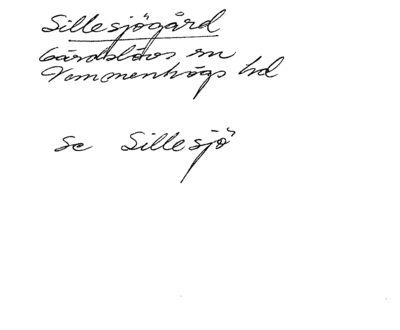 Sillesjögård
Gärdslövs sn
Vemmenhögs hd
se Sillesjö